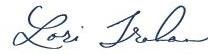 Lori Trahan